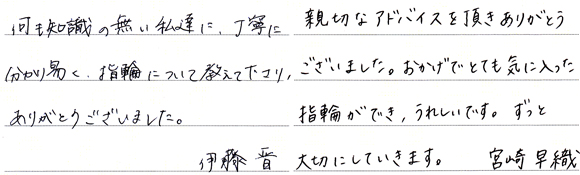 何も知識の無い私達に、丁寧に
分かり易く、指輪について教えて下さり、
ありがとうございました。
伊藤 晋
親切なアドバイスを頂きありがとう
ございました。おかげでとても気に入った
指輪ができ、うれしいです。ずっと
大切にしていきます。 宮崎 早織